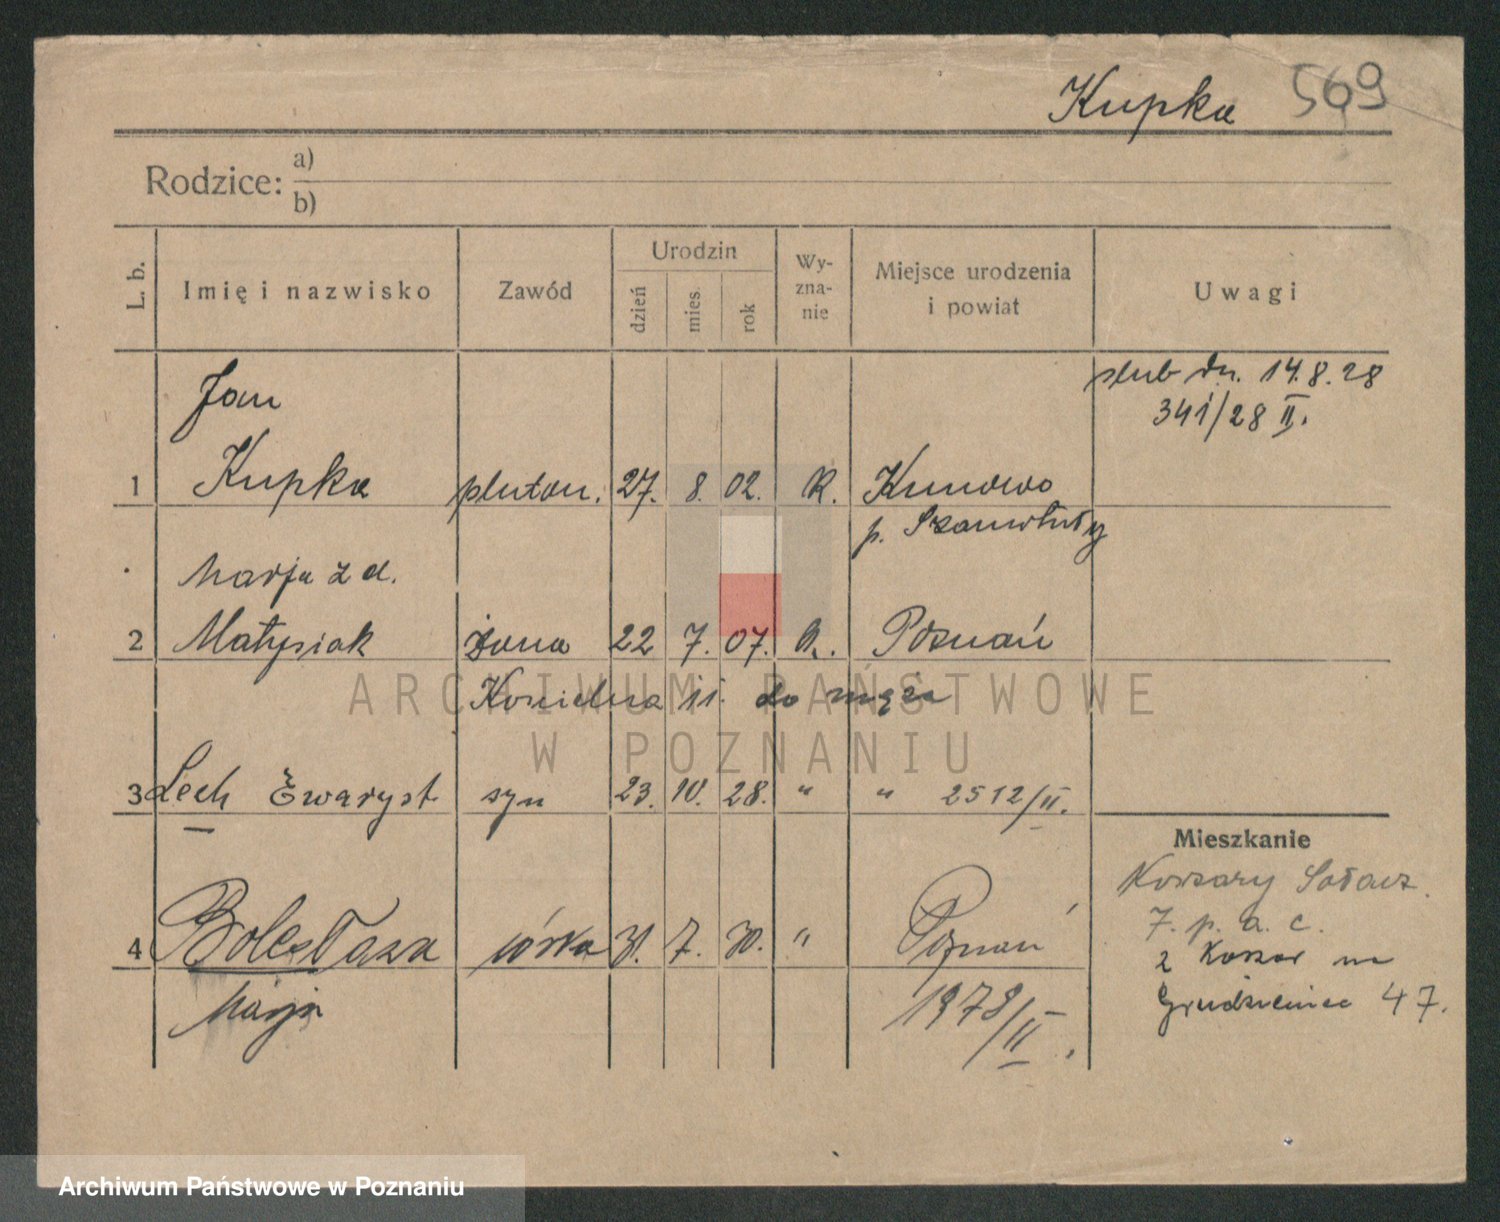 Kupka 569
Rodzice: a)
b)
L. b. Imię i nazwisko Zawód Urodzin dzień mies. rok Wy-zna-nie Miejsce urodzenia i powiat Uwagi
ślub dn. 14.8.28
341/28 II.
Jan
1 Kupka pluton. 27. 8. 02. R. Kunowo
p. Szamotuły
Marja z d.
2 Matysiak żona 22 7. 07. R. Poznań
Kościelna 11. do męża
3 Lech Ewaryst syn 23. 10. 28. " " 2512/II.
4 Bolesława córka 31. 7. 30. " Poznań
Marja 1979/II.
Mieszkanie
Koszary Sołacz.
7. p. a. c.
z Koszar na
Grudzieniec 47.
ARCHIWUM PAŃSTWOWE
W POZNANIU
Archiwum Państwowe w Poznaniu